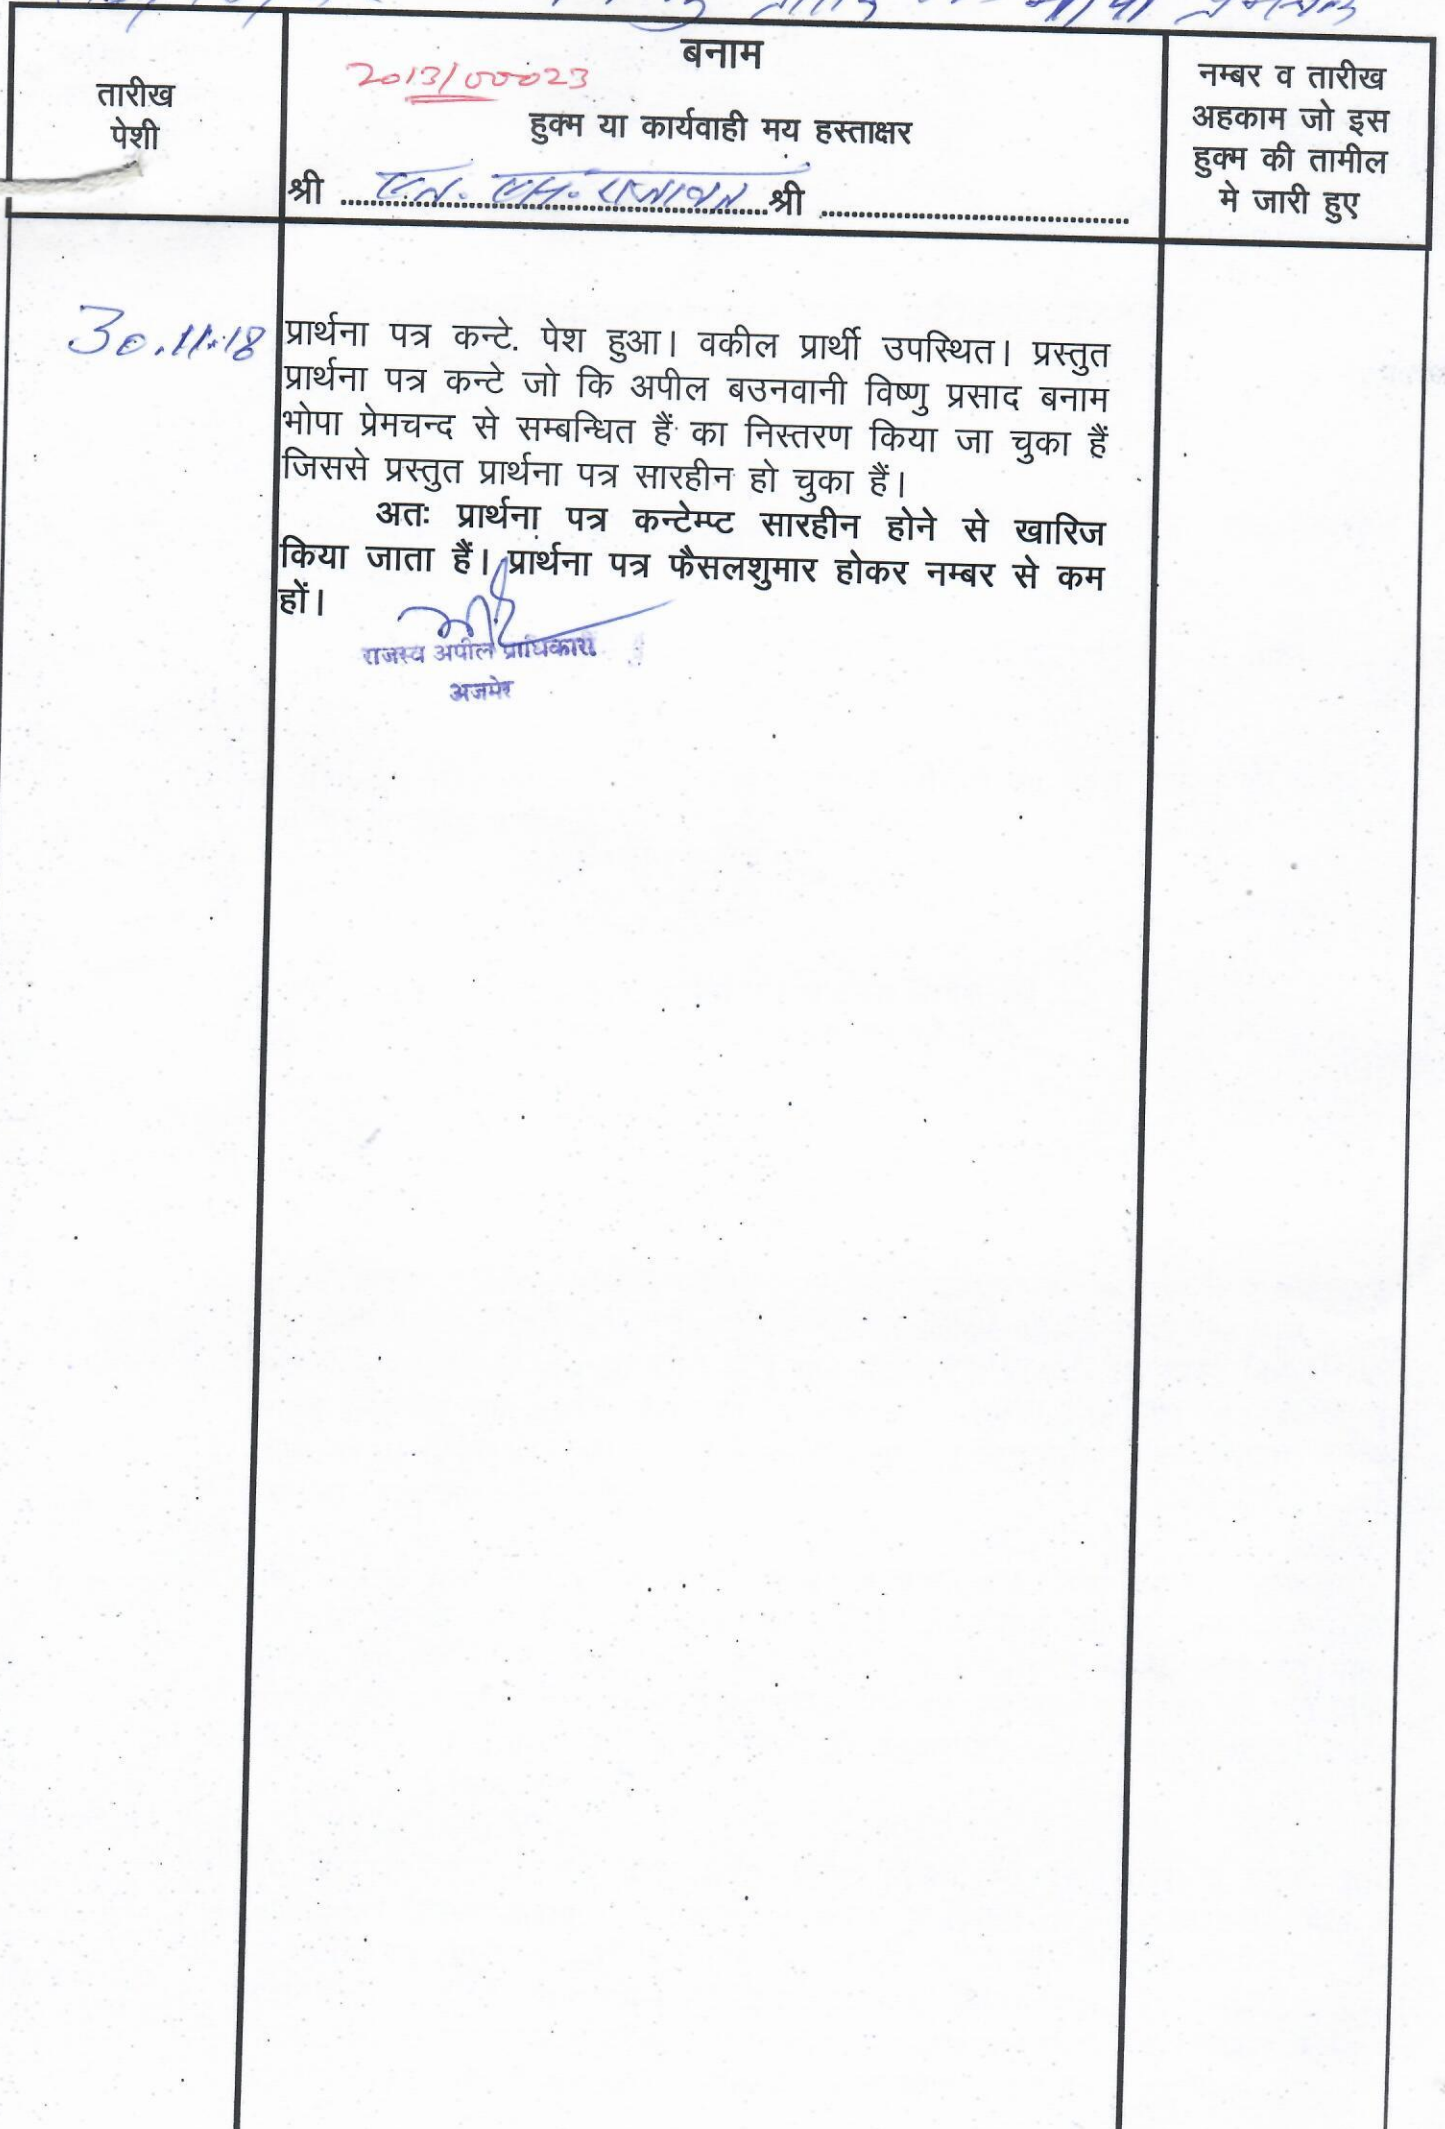 बनाम
2013/00023
तारीख
पेशी
हुक्म या कार्यवाही मय हस्ताक्षर
श्री ........ एन. एम. राजावत ........ श्री ........
नम्बर व तारीख
अहकाम जो इस
हुक्म की तामील
मे जारी हुए
30.11.18
प्रार्थना पत्र कन्टे. पेश हुआ। वकील प्रार्थी उपस्थित। प्रस्तुत
प्रार्थना पत्र कन्टे जो कि अपील बउनवानी विष्णु प्रसाद बनाम
भोपा प्रेमचन्द से सम्बन्धित हैं का निस्तरण किया जा चुका हैं
जिससे प्रस्तुत प्रार्थना पत्र सारहीन हो चुका हैं।
अतः प्रार्थना पत्र कन्टेम्प्ट सारहीन होने से खारिज
किया जाता हैं। प्रार्थना पत्र फैसलशुमार होकर नम्बर से कम
हों।
राजस्व अपील प्राधिकारी
अजमेर